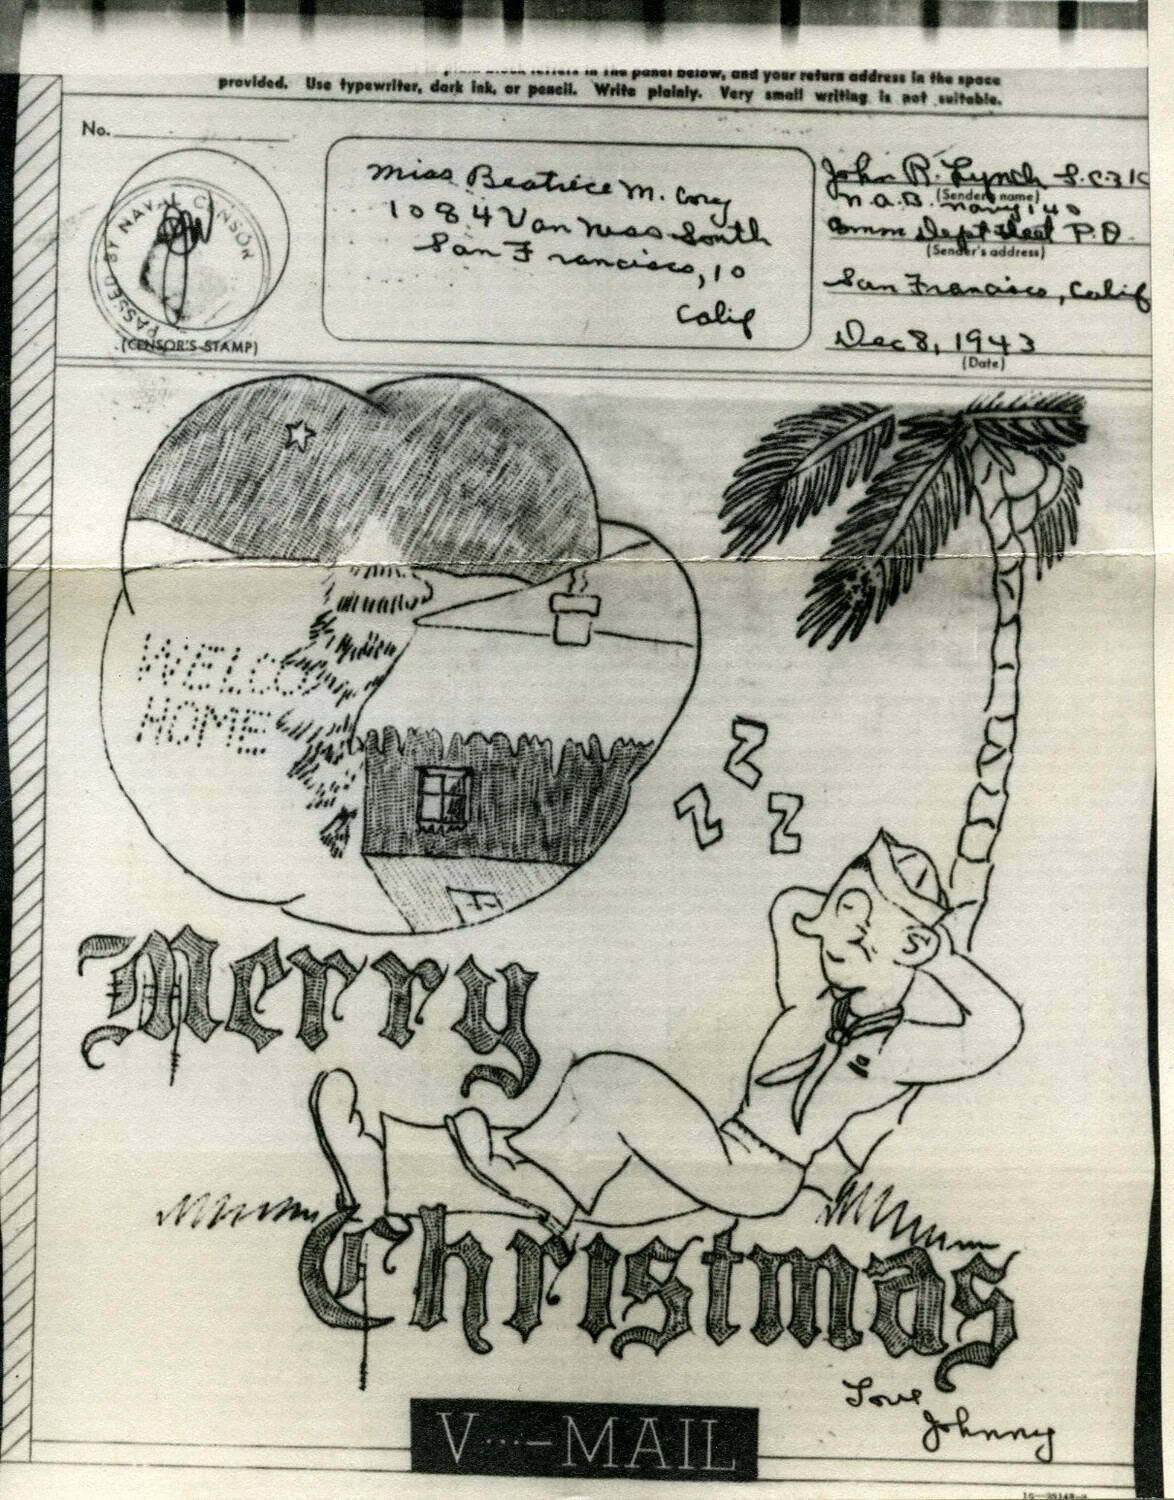 plain block letters in the panel below, and your return address in the space
provided. Use typewriter, dark ink, or pencil. Write plainly. Very small writing is not suitable.
No.
PASSED BY NAVAL CENSOR
(CENSOR'S STAMP)
Miss Beatrice M. Cory
1084 Van Ness South
San Francisco, 10
Calif
John R. Lynch S.C.3/C
(Sender's name)
N.A.B. Navy 140
Comm Dept Fleet P.O.
(Sender's address)
San Francisco, Calif
Dec 8, 1943
(Date)
WELCO
HOME
Z
Z Z
Merry
Christmas
Love
Johnny
V···—MAIL